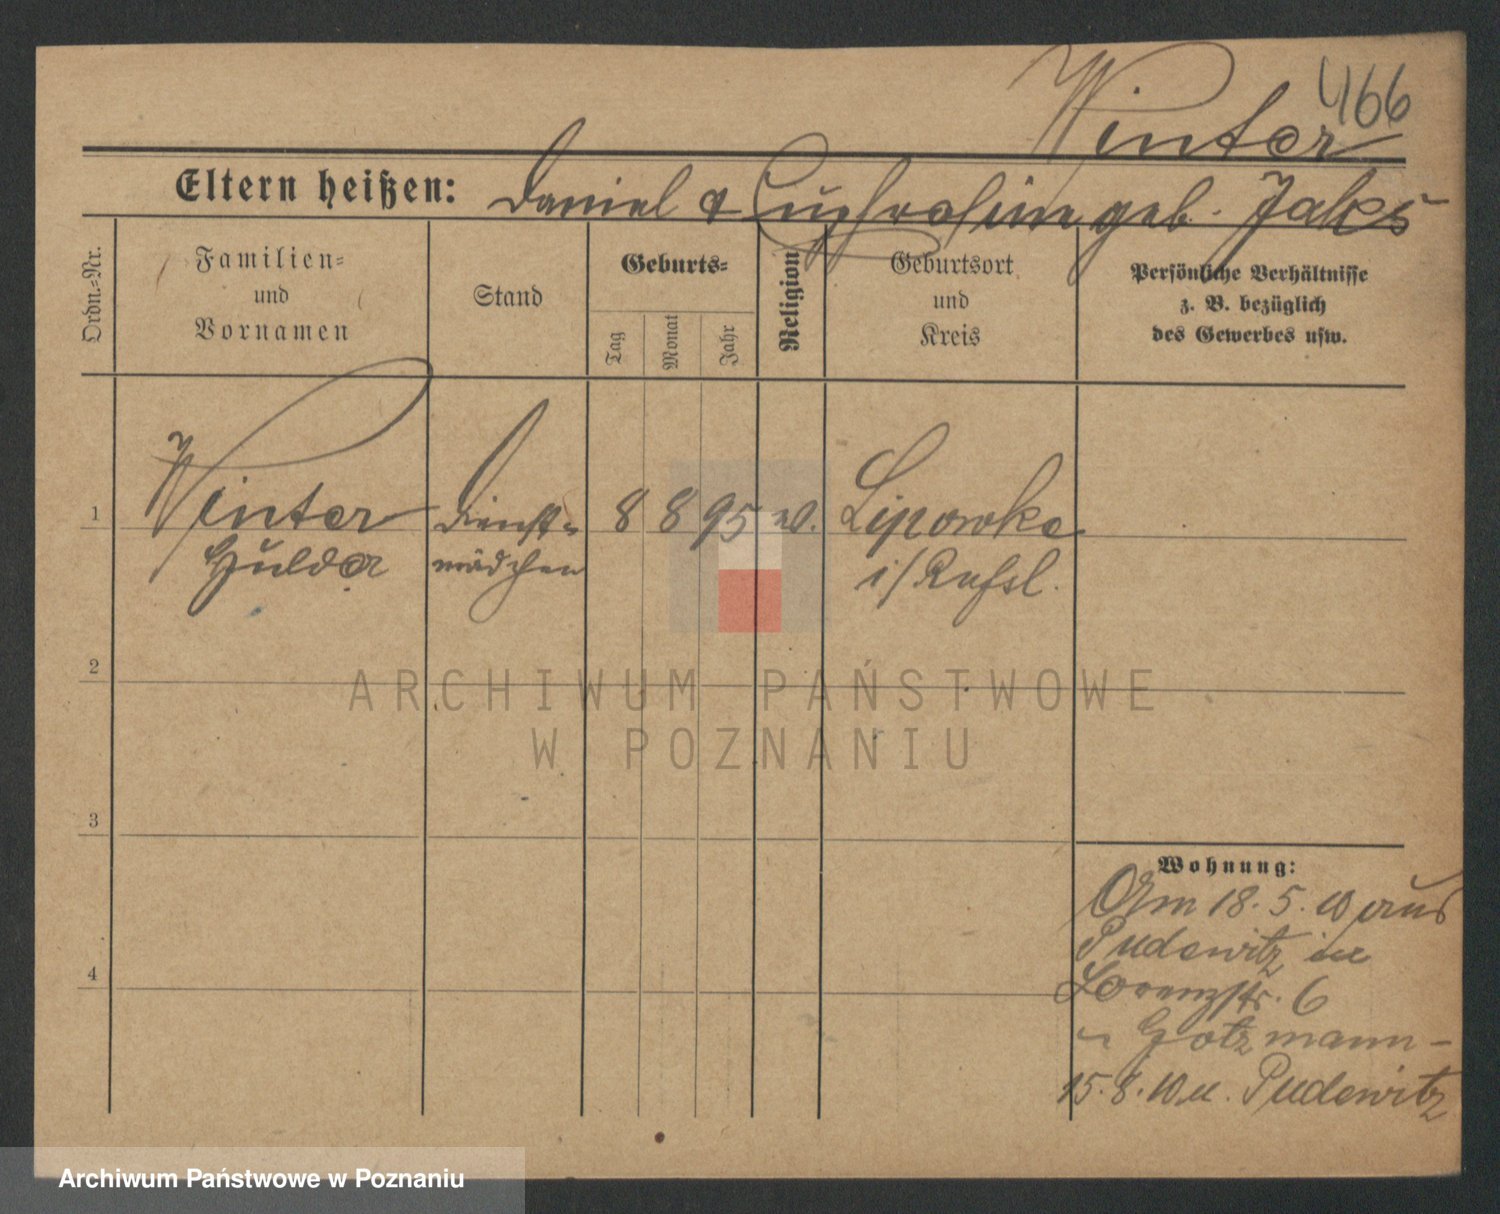 466
Winter
Eltern heißen: Daniel & geb. Jaks
Ordn.-Nr.
Familien-
und
Vornamen
Stand
Geburts-
Tag
Monat
Jahr
Religion
Geburtsort
und
Kreis
Persönliche Verhältnisse
z. B. bezüglich
des Gewerbes usw.
1 Winter Dienst- 8 8 95 Lipowke
Hulda mädchen i/Rußl.
2
3
4
Wohnung:
Am 18. 5. 10 aus
Pudewitz in
Lorenzstr. 6
Gotzmann -
15. 8. 10 n. Pudewitz
ARCHIWUM PAŃSTWOWE
W POZNANIU
Archiwum Państwowe w Poznaniu